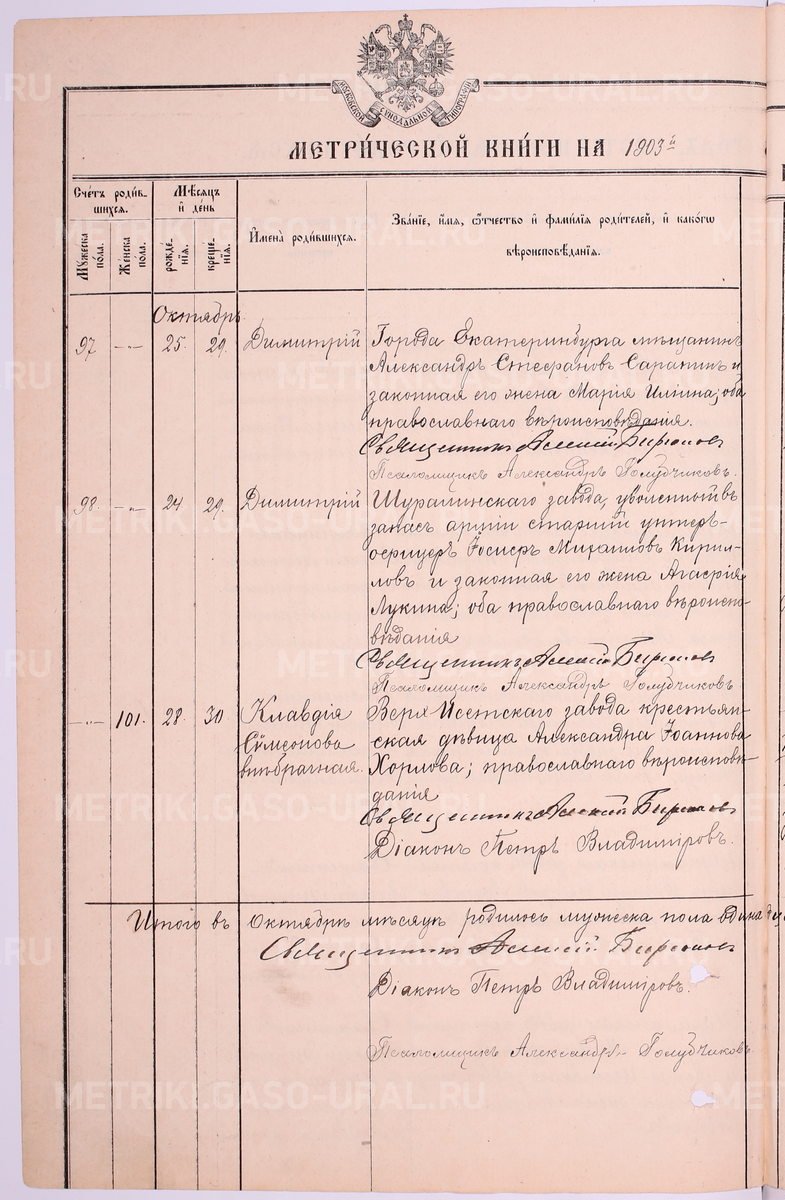 МОСКОВСКОЙ СѴНОДАЛЬНОЙ ТИПОГРАФІИ
МЕТРИ́ЧЕСКОЙ КНИ́ГИ НА 1903й
Сче́тъ роди́в-
шихся.
Мꙋ́жеска
по́ла.
Же́нска
по́ла.
Мѣ́сѧцъ
и҆ де́нь
рожде́-
нїѧ.
креще́-
нїѧ.
И҆мена̀ роди́вшихсѧ.
Зва́нїе, и҆́мѧ, ѻ҆́тчество и҆ фами́лїѧ роди́телей, и҆ како́гѡ
вѣроисповѣ́данїѧ.
Октябрь
97 -„- 25. 29. Димитрій Города Екатеринбурга мѣщанинъ
Александръ Стефановъ Сарапин и
законная его жена Марія Иліина; оба
православнаго вѣроисповѣданія.
Священникъ Алексій Бирюков
Псаломщикъ Александръ Голубчиковъ.
98. -„- 24 29. Димитрій Шуралинскаго завода, уволенный въ
запасъ арміи старшій унтеръ-
офицеръ Іосифъ Михаиловъ Кирил-
ловъ и законная его жена Агафія
Лукина; оба православнаго вѣроиспо-
вѣданія
Священникъ Алексій Бирюков
Псаломщикъ Александръ Голубчиковъ
-„- 101. 28. 30 Клавдія Верх Исетскаго завода крестьян-
Сѵмеонова ская дѣвица Александра Іоаннова
внѣбрачная. Хорлова; православнаго вѣроисповѣ-
данія
Священникъ Алексій Бирюков
Діаконъ Петръ Владиміровъ.
Итого въ Октябрѣ мѣсяцѣ родилось мужеска пола одина
Священникъ Алексій Бирюков
Діаконъ Петръ Владиміровъ.
Псаломщикъ Александръ Голубчиковъ
METRIKI.GASO-URAL.RU